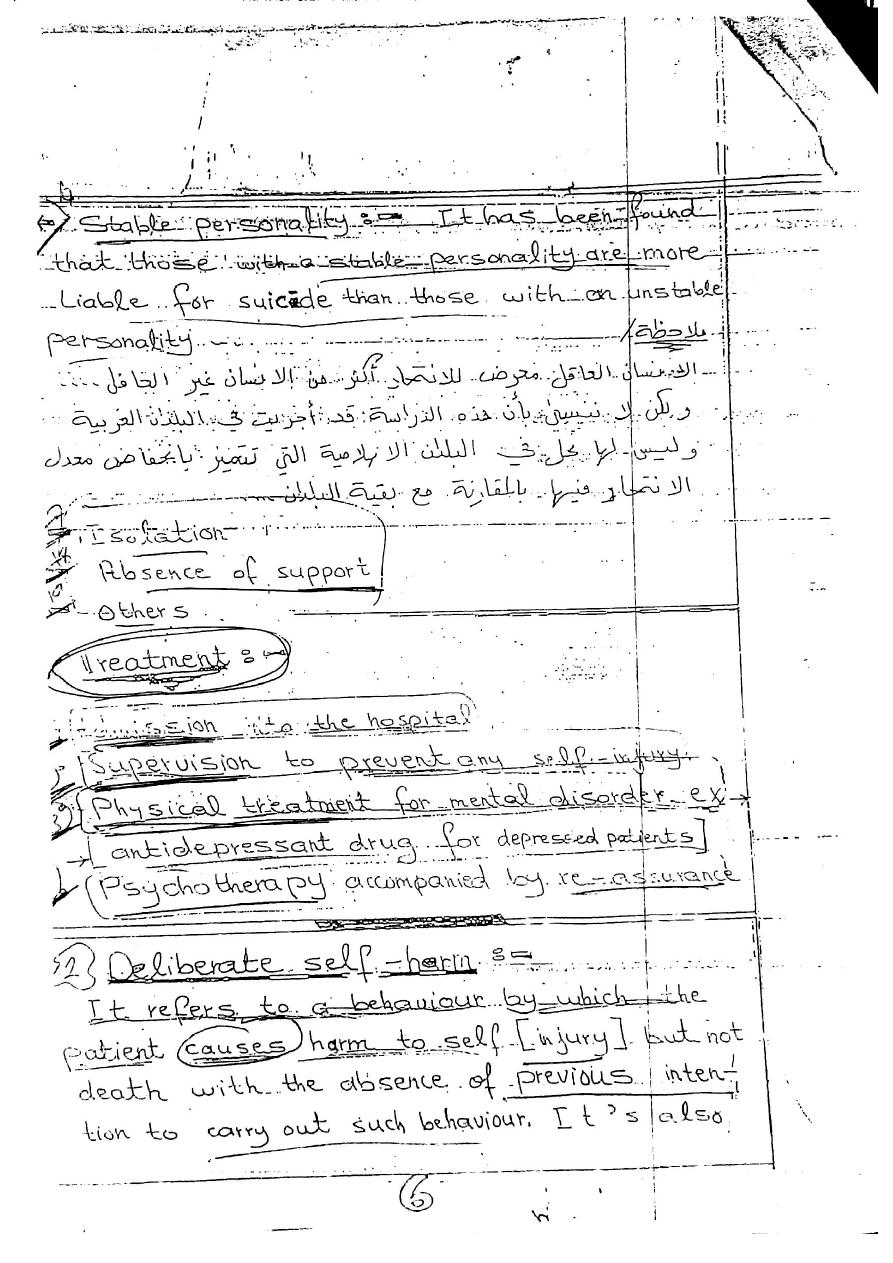 Stable personality :- It has been found
that those with a stable personality are more
Liable for suicide than those with an unstable
personality
ملاحظة/
الانسان العاقل معرض للانتحار أكثر من الانسان غير العاقل
ولكن لا ننسى بأن هذه الدراسة قد أجريت في البلدان الغربية
وليس لها محل في البلدان الاسلامية التي تتميز بانخفاض معدل
الانتحار فيها بالمقارنة مع بقية البلدان
Isolation
Absence of support
Others
Treatment :-
Admission into the hospital
Supervision to prevent any self-injury.
3) Physical treatment for mental disorder ex →
→ [antidepressant drug for depressed patients]
Psychotherapy accompanied by re-assurance
2} Deliberate self-harm :=
It refers to a behaviour by which the
patient causes harm to self [injury] but not
death with the absence of previous inten-
tion to carry out such behaviour. It's also
6